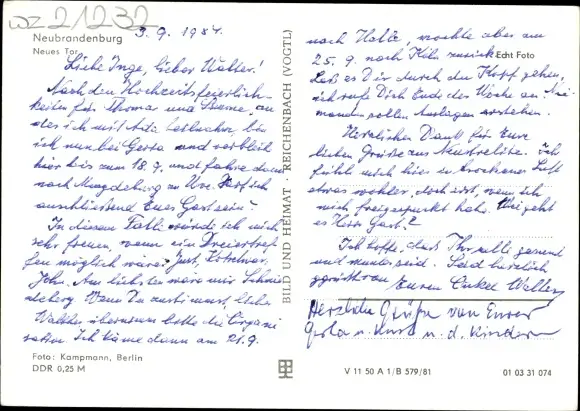 wz 21232
Neubrandenburg
Neues Tor
3.9.1984.
Liebe Inge, lieber Walter!
Nach den Hochzeitsfeierlich-
keiten für Thomas und Beme, an
der ich mit teilnahm, bin
ich nun bei Gerta und verbleib
hier bis zum 18.9. und fahre dann
nach Magdeburg zu Uve. Darf ich
anschließend Euer Gast sein?
In diesem Falle würde ich mich
sehr freuen, wenn ein Dreiertref
fen möglich wäre: Just, Kötschner,
John. Am liebsten wäre mir Schmie
deberg. Wenn Du zustimmst, lieber
Walter, übernimm bitte die Organi
sation. Ich käme dann am 21.9.
nach Halle, möchte aber am
25.9. nach Köln zurück.
Laß es Dir durch den Kopf gehen,
ich rufe Dich Ende der Woche an. Nie
mandem sollen Auslagen entstehen.
Herzlichen Dank für Eure
lieben Grüße aus Neustrelitz. Ich
fühle mich hier in trockener Luft
etwas wohler, doch erst, wenn ich
mich freigespuckt habe. Wie geht
es Herrn Gast?
Ich hoffe, daß Ihr alle gesund
und munter seid. Seid herzlich
gegrüßt von Eurem Onkel Willy
Herzliche Grüße von Eurer
Gerta u. Kurt u. d. Kindern
Echt Foto
BILD UND HEIMAT · REICHENBACH (VOGTL)
Foto: Kampmann, Berlin
DDR 0,25 M
V 11 50 A 1/B 579/81
01 03 31 074